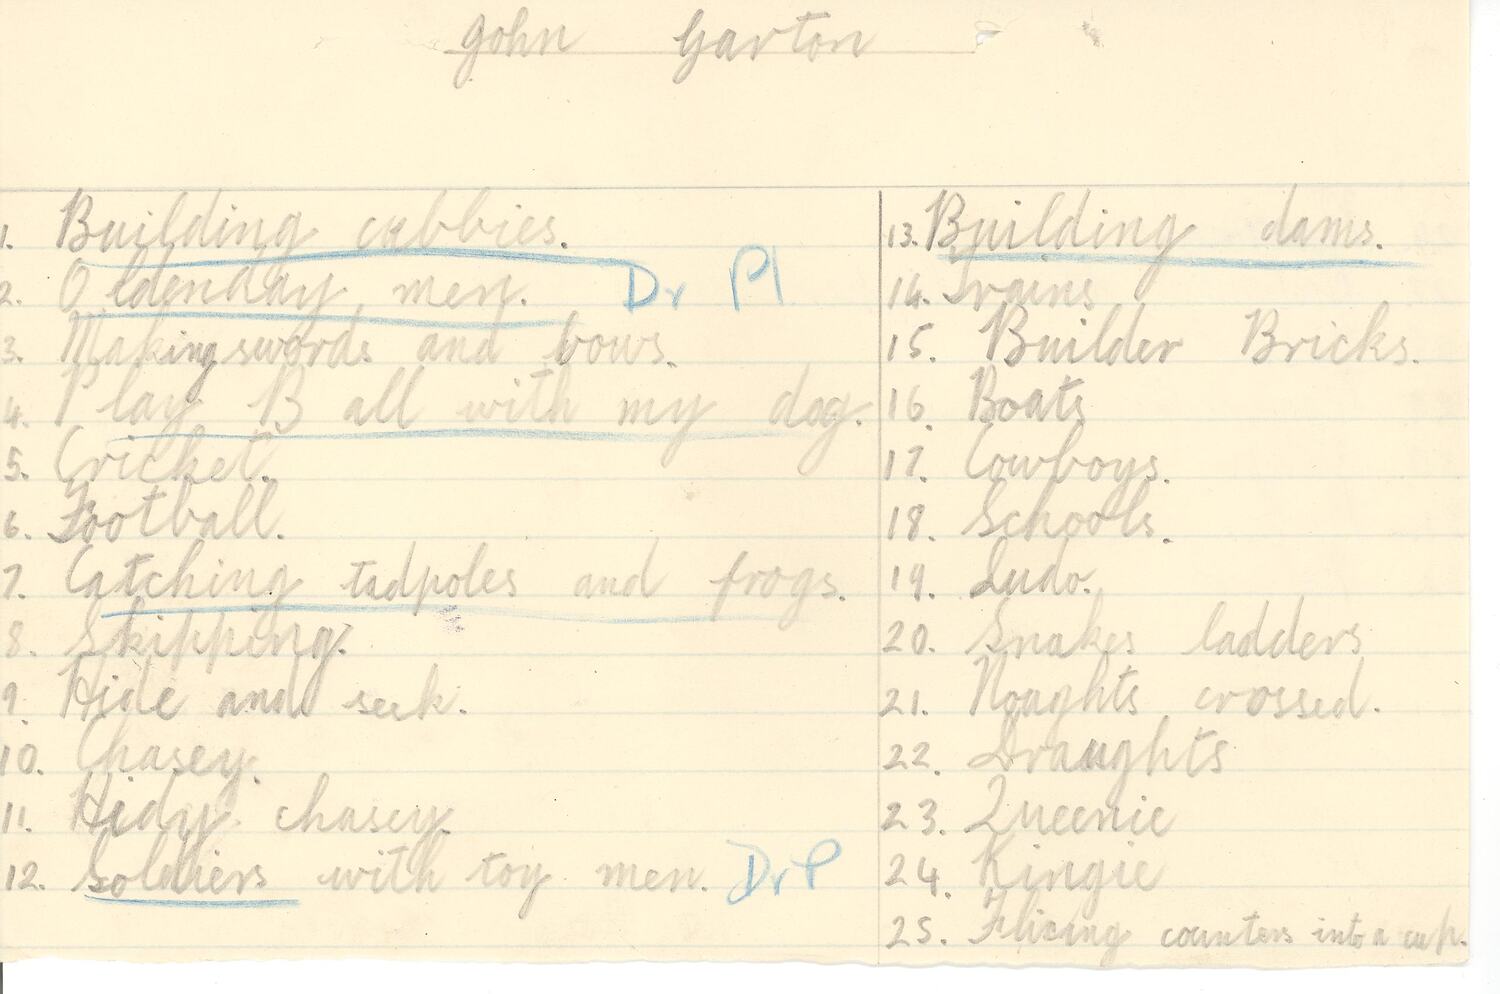 John Garton
1. Building cubbies.
2. Oldenday men. Dr Pl
3. Making swords and bows.
4. Play Ball with my dog.
5. Cricket.
6. Football.
7. Catching tadpoles and frogs.
8. Skipping.
9. Hide and seek.
10. Chasey.
11. Hidy chasey.
12. Soldiers with toy men. Dr P
13. Building dams.
14. Trains
15. Builder Bricks.
16. Boats
17. Cowboys.
18. Schools.
19. Ludo.
20. Snakes ladders
21. Noughts crossed.
22. Draughts
23. Queenie
24. Kingie
25. Flicing counters into a cup.